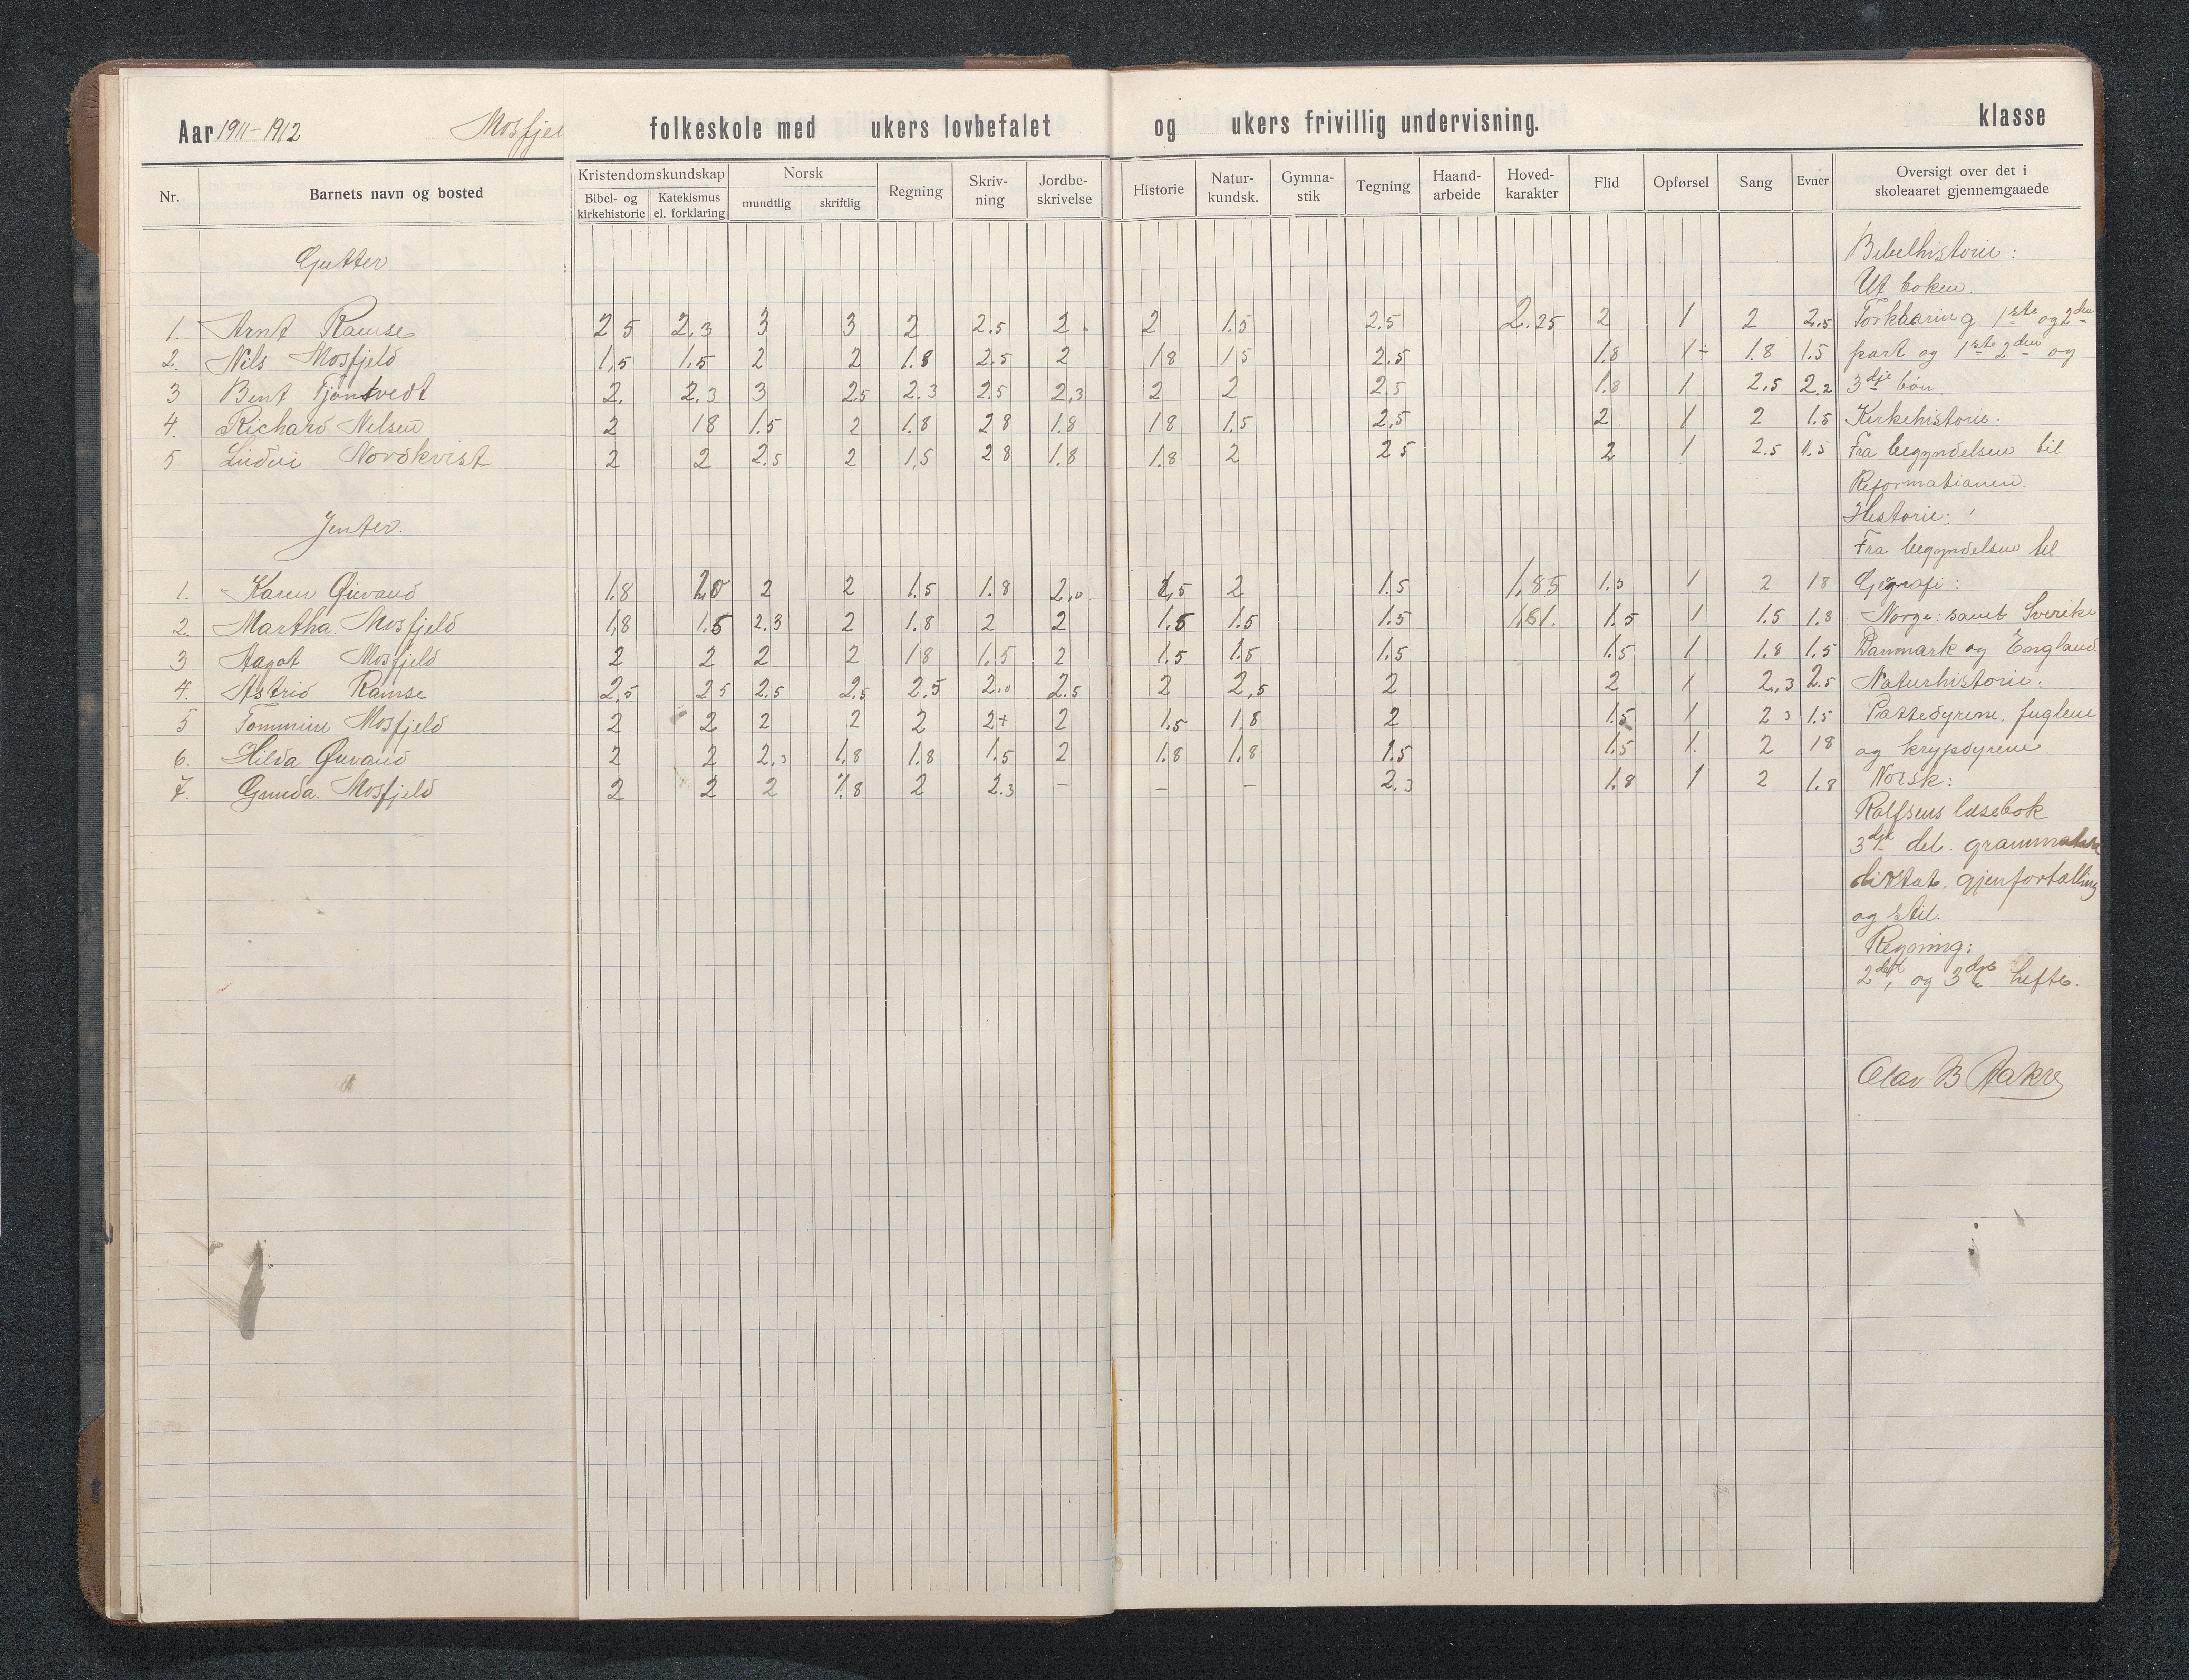 Aar 1911-1912 Mosfjel folkeskole med ukers lovbefalet og ukers frivillig undervisning. klasse
Nr. Barnets navn og bosted Kristendomskundskap Bibel- og kirkehistorie Katekismus el. forklaring Norsk mundtlig skriftlig Regning Skriv-ning Jordbe-skrivelse Historie Natur-kundsk. Gymna-stik Tegning Haand-arbeide Hoved-karakter Flid Opførsel Sang Evner Oversigt over det i skoleaaret gjennemgaaede
Gutter
1. Arnt Ramse 2 5 2.3 3 3 2 2.5 2. 2 1.5 2.5 2.25 2 1 2 2.5
2. Nils Mosfjeld 1,5 1.5 2 2 1.8 2.5 2 18 15 2.5 1.8 1÷ 1.8 1.5
3 Bent Tjøntvedt 2. 2.3 3 2.5 2.3 2.5 2,3 2 2 2.5 1.8 1 2,5 2,2
4. Richard Nilsen 2 18 1.5 2 1.8 28 1.8 18 1.5 2,5 2 1 2 1.5
5. Nordkvist 2 2 2.5 2 1,5 28 1.8 1.8 2 25 2 1 2.5 1.5
Jenter.
1. Karen 1.8 2.0 2 2 1.5 1.8 2,0 1,5 2 1.5 1.85 1.5 1 2 18
2. Martha Mosfjeld 1,8 1.5 2.3 2 1.8 2 2 1.5 1.5 1.5 1,61. 1.5 1 1.5 1.8
3 Aagot Mosfjeld 2 2 2 2 18 1.5 2 1.5 1.5 1.5 1.5 1 1.8 1.5
4. Astrid Ramse 2,5 25 2.5 2.5 2,5 2.0 2.5 2 2,5 2 2 1 2,3 2.5
5 Tommine Mosfjeld 2 2 2 2 2 2+ 2 1.5 1.8 2 1.5 1 2 3 1.5
6. Hilda 2 2 2.3 1.8 1.8 1.5 2 1.8 1.8 1.5 1.5 1. 2 18
7. Gunda. Mosfjeld 2 2 2 1.8 2 2.3 – – – 2.3 1.8 1 2 1.8
Bibelhistorie:
Ut boken.
Forklaring. 1ste og 2den
part og 1ste 2den og
3dje bøn.
Kirkehistorie:
Fra begyndelsen til
Reformationen.
Historie:
Fra begyndelsen til
Geografi:
Norge: samt Sverike
Danmark og England
Naturhistorie:
Pattedyrene, fuglene
og krypdyrene.
Norsk:
Rolfsens læsebok
3dje del. grammatik
diktat, gjenfortælling
og stil.
Regning:
2det, og 3dje hefte.
Olav B Aakre